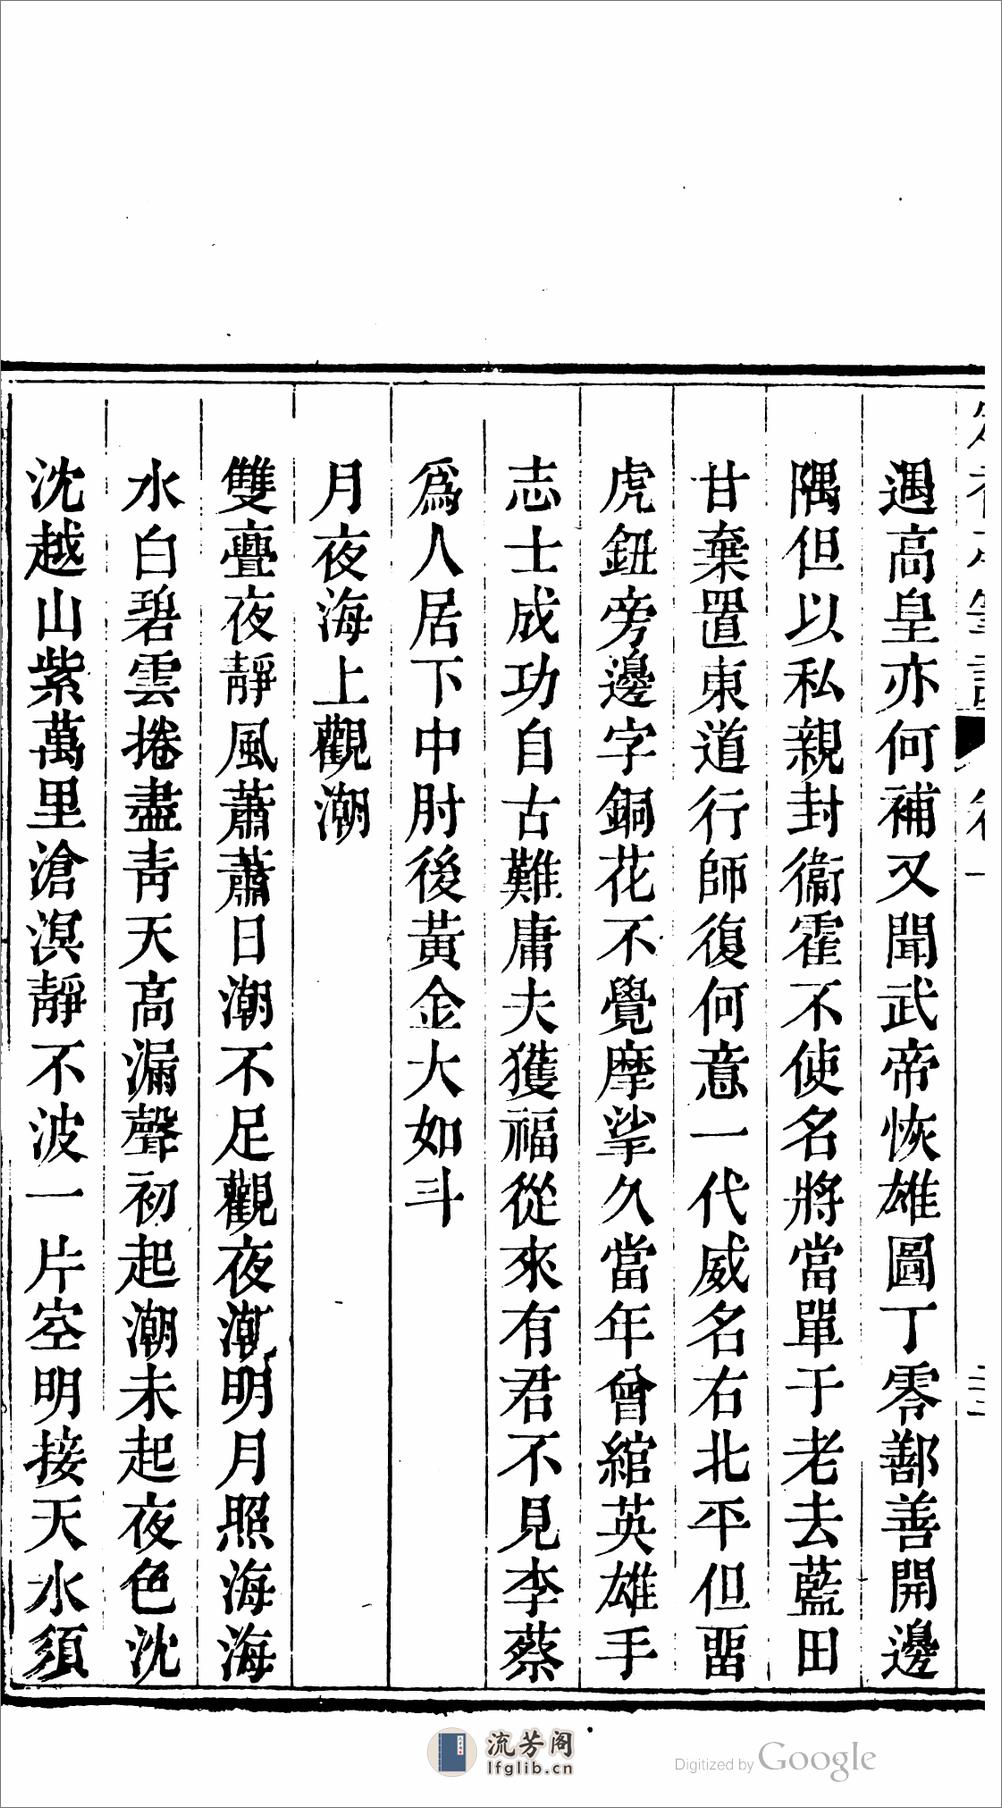 遇高皇亦何補又聞武帝恢雄圖丁零鄯善開邊
隅但以私親封衞霍不使名將當單于老去藍田
甘棄置東道行師復何意一代威名右北平但畱
虎鈕旁邊字銅花不覺摩挲久當年曾綰英雄手
志士成功自古難庸夫獲福從來有君不見李蔡
爲人居下中肘後黃金大如斗
月夜海上觀潮
雙疊夜靜風蕭蕭日潮不足觀夜潮明月照海海
水白碧雲捲盡靑天高漏聲初起潮未起夜色沈
沈越山紫萬里滄溟靜不波一片空明接天水須
流芳阁
lfglib.cn
Digitized by Google